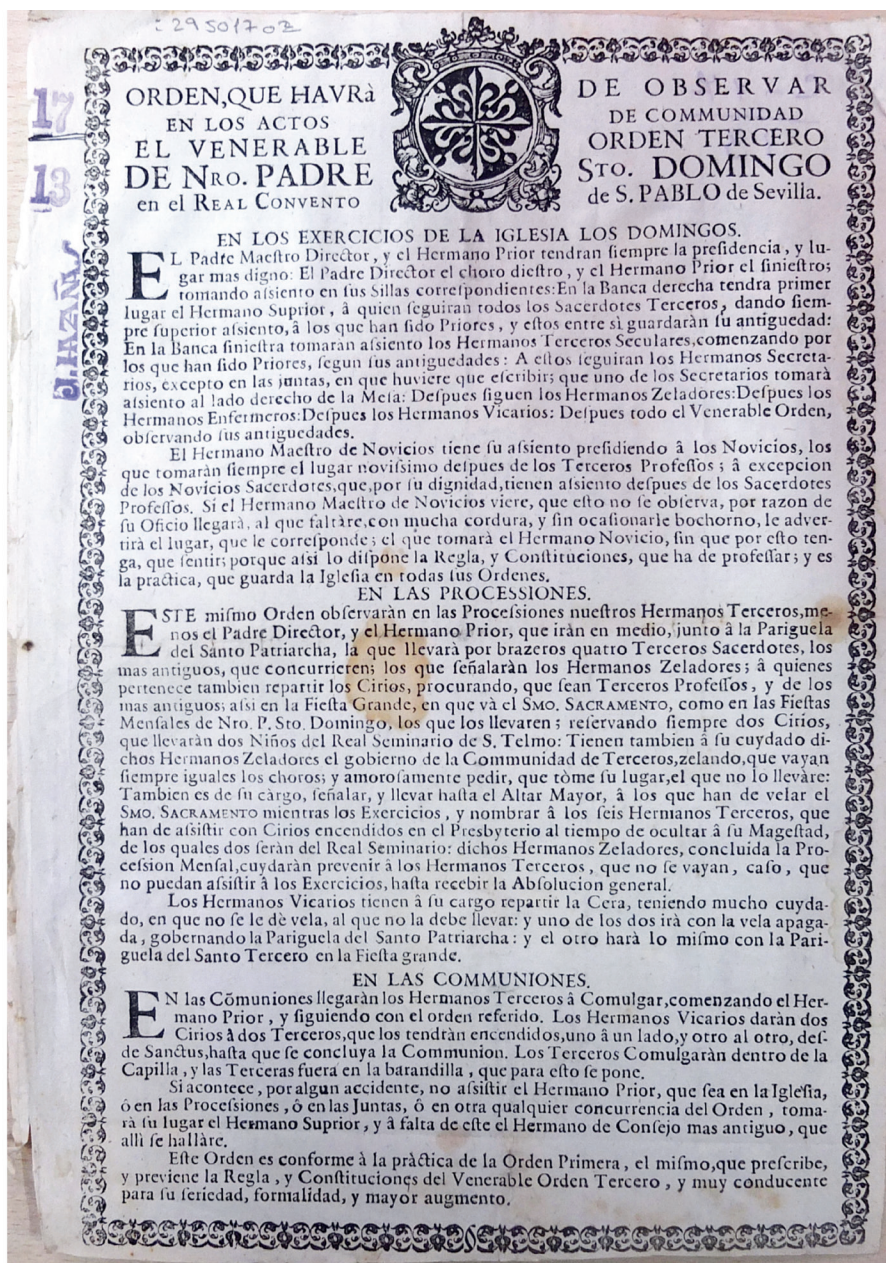 i 29501702
17
13
J. HAZAÑAS
ORDEN, QUE HAVRà DE OBSERVAR
EN LOS ACTOS DE COMMUNIDAD
EL VENERABLE ORDEN TERCERO
DE NRO. PADRE STO. DOMINGO
en el REAL CONVENTO de S. PABLO de Sevilla.
EN LOS EXERCICIOS DE LA IGLESIA LOS DOMINGOS.
EL Padre Maeſtro Director, y el Hermano Prior tendran ſiempre la preſidencia, y lu-
gar mas digno: El Padre Director el choro dieſtro, y el Hermano Prior el ſinieſtro;
tomando aſsiento en ſus Sillas correſpondientes: En la Banca derecha tendra primer
lugar el Hermano Suprior, â quien ſeguiran todos los Sacerdotes Terceros, dando ſiem-
pre ſuperior aſsiento, â los que han ſido Priores, y eſtos entre sì guardaràn ſu antiguedad:
En la Banca ſinieſtra tomaràn aſsiento los Hermanos Terceros Seculares, comenzando por
los que han ſido Priores, ſegun ſus antiguedades: A eſtos ſeguiran los Hermanos Secreta-
rios, excepto en las juntas, en que huviere que eſcribir; que uno de los Secretarios tomarà
aſsiento al lado derecho de la Meſa: Deſpues ſiguen los Hermanos Zeladores: Deſpues los
Hermanos Enfermeros: Deſpues los Hermanos Vicarios: Deſpues todo el Venerable Orden,
obſervando ſus antiguedades.
El Hermano Maeſtro de Novicios tiene ſu aſsiento preſidiendo â los Novicios, los
que tomaràn ſiempre el lugar noviſsimo deſpues de los Terceros Profeſſos; â excepcion
de los Novicios Sacerdotes, que, por ſu dignidad, tienen aſsiento deſpues de los Sacerdotes
Profeſſos. Si el Hermano Maeſtro de Novicios viere, que eſto no ſe obſerva, por razon de
ſu Oficio llegarà, al que faltàre, con mucha cordura, y ſin ocaſionarle bochorno, le adver-
tirà el lugar, que le correſponde; el que tomarà el Hermano Novicio, ſin que por eſto ten-
ga, que ſentir; porque aſsi lo diſpone la Regla, y Conſtituciones, que ha de profeſſar; y es
la practica, que guarda la Igleſia en todas ſus Ordenes.
EN LAS PROCESSIONES.
ESTE miſmo Orden obſervaràn en las Proceſsiones nueſtros Hermanos Terceros, me-
nos el Padre Director, y el Hermano Prior, que iràn en medio, junto â la Pariguela
del Santo Patriarcha, la que llevarà por brazeros quatro Terceros Sacerdotes, los
mas antiguos, que concurrieren; los que ſeñalaràn los Hermanos Zeladores; â quienes
pertenece tambien repartir los Cirios, procurando, que ſean Terceros Profeſſos, y de los
mas antiguos; aſsi en la Fieſta Grande, en que và el SMO. SACRAMENTO, como en las Fieſtas
Menſales de Nro. P. Sto. Domingo, los que los llevaren; reſervando ſiempre dos Cirios,
que llevaràn dos Niños del Real Seminario de S. Telmo: Tienen tambien â ſu cuydado di-
chos Hermanos Zeladores el gobierno de la Communidad de Terceros, zelando, que vayan
ſiempre iguales los choros; y amoroſamente pedir, que tòme ſu lugar, el que no lo llevàre:
Tambien es de ſu càrgo, ſeñalar, y llevar haſta el Altar Mayor, â los que han de velar el
SMO. SACRAMENTO mientras los Exercicios, y nombrar â los ſeis Hermanos Terceros, que
han de aſsiſtir con Cirios encendidos en el Presbyterio al tiempo de ocultar â ſu Mageſtad,
de los quales dos ſeràn del Real Seminario: dichos Hermanos Zeladores, concluida la Pro-
ceſsion Menſal, cuydaràn prevenir â los Hermanos Terceros, que no ſe vayan, caſo, que
no puedan aſsiſtir â los Exercicios, haſta recebir la Abſolucion general.
Los Hermanos Vicarios tienen â ſu cargo repartir la Cera, teniendo mucho cuyda-
do, en que no ſe le dè vela, al que no la debe llevar: y uno de los dos irà con la vela apaga-
da, gobernando la Pariguela del Santo Patriarcha: y el otro harà lo miſmo con la Pari-
guela del Santo Tercero en la Fieſta grande.
EN LAS COMMUNIONES.
EN las Cõmuniones llegaràn los Hermanos Terceros â Comulgar, comenzando el Her-
mano Prior, y ſiguiendo con el orden referido. Los Hermanos Vicarios daràn dos
Cirios â dos Terceros, que los tendràn encendidos, uno â un lado, y otro al otro, deſ-
de Sanctus, haſta que ſe concluya la Communion. Los Terceros Comulgaràn dentro de la
Capilla, y las Terceras fuera en la barandilla, que para eſto ſe pone.
Si acontece, por algun accidente, no aſsiſtir el Hermano Prior, que ſea en la Igleſia,
ô en las Proceſsiones, ô en las Juntas, ô en otra qualquier concurrencia del Orden, toma-
rà ſu lugar el Hermano Suprior, y â falta de eſte el Hermano de Conſejo mas antiguo, que
allì ſe hallàre.
Eſte Orden es conforme à la pràctica de la Orden Primera, el miſmo, que preſcribe,
y previene la Regla, y Conſtituciones del Venerable Orden Tercero, y muy conducente
para ſu ſeriedad, formalidad, y mayor augmento.